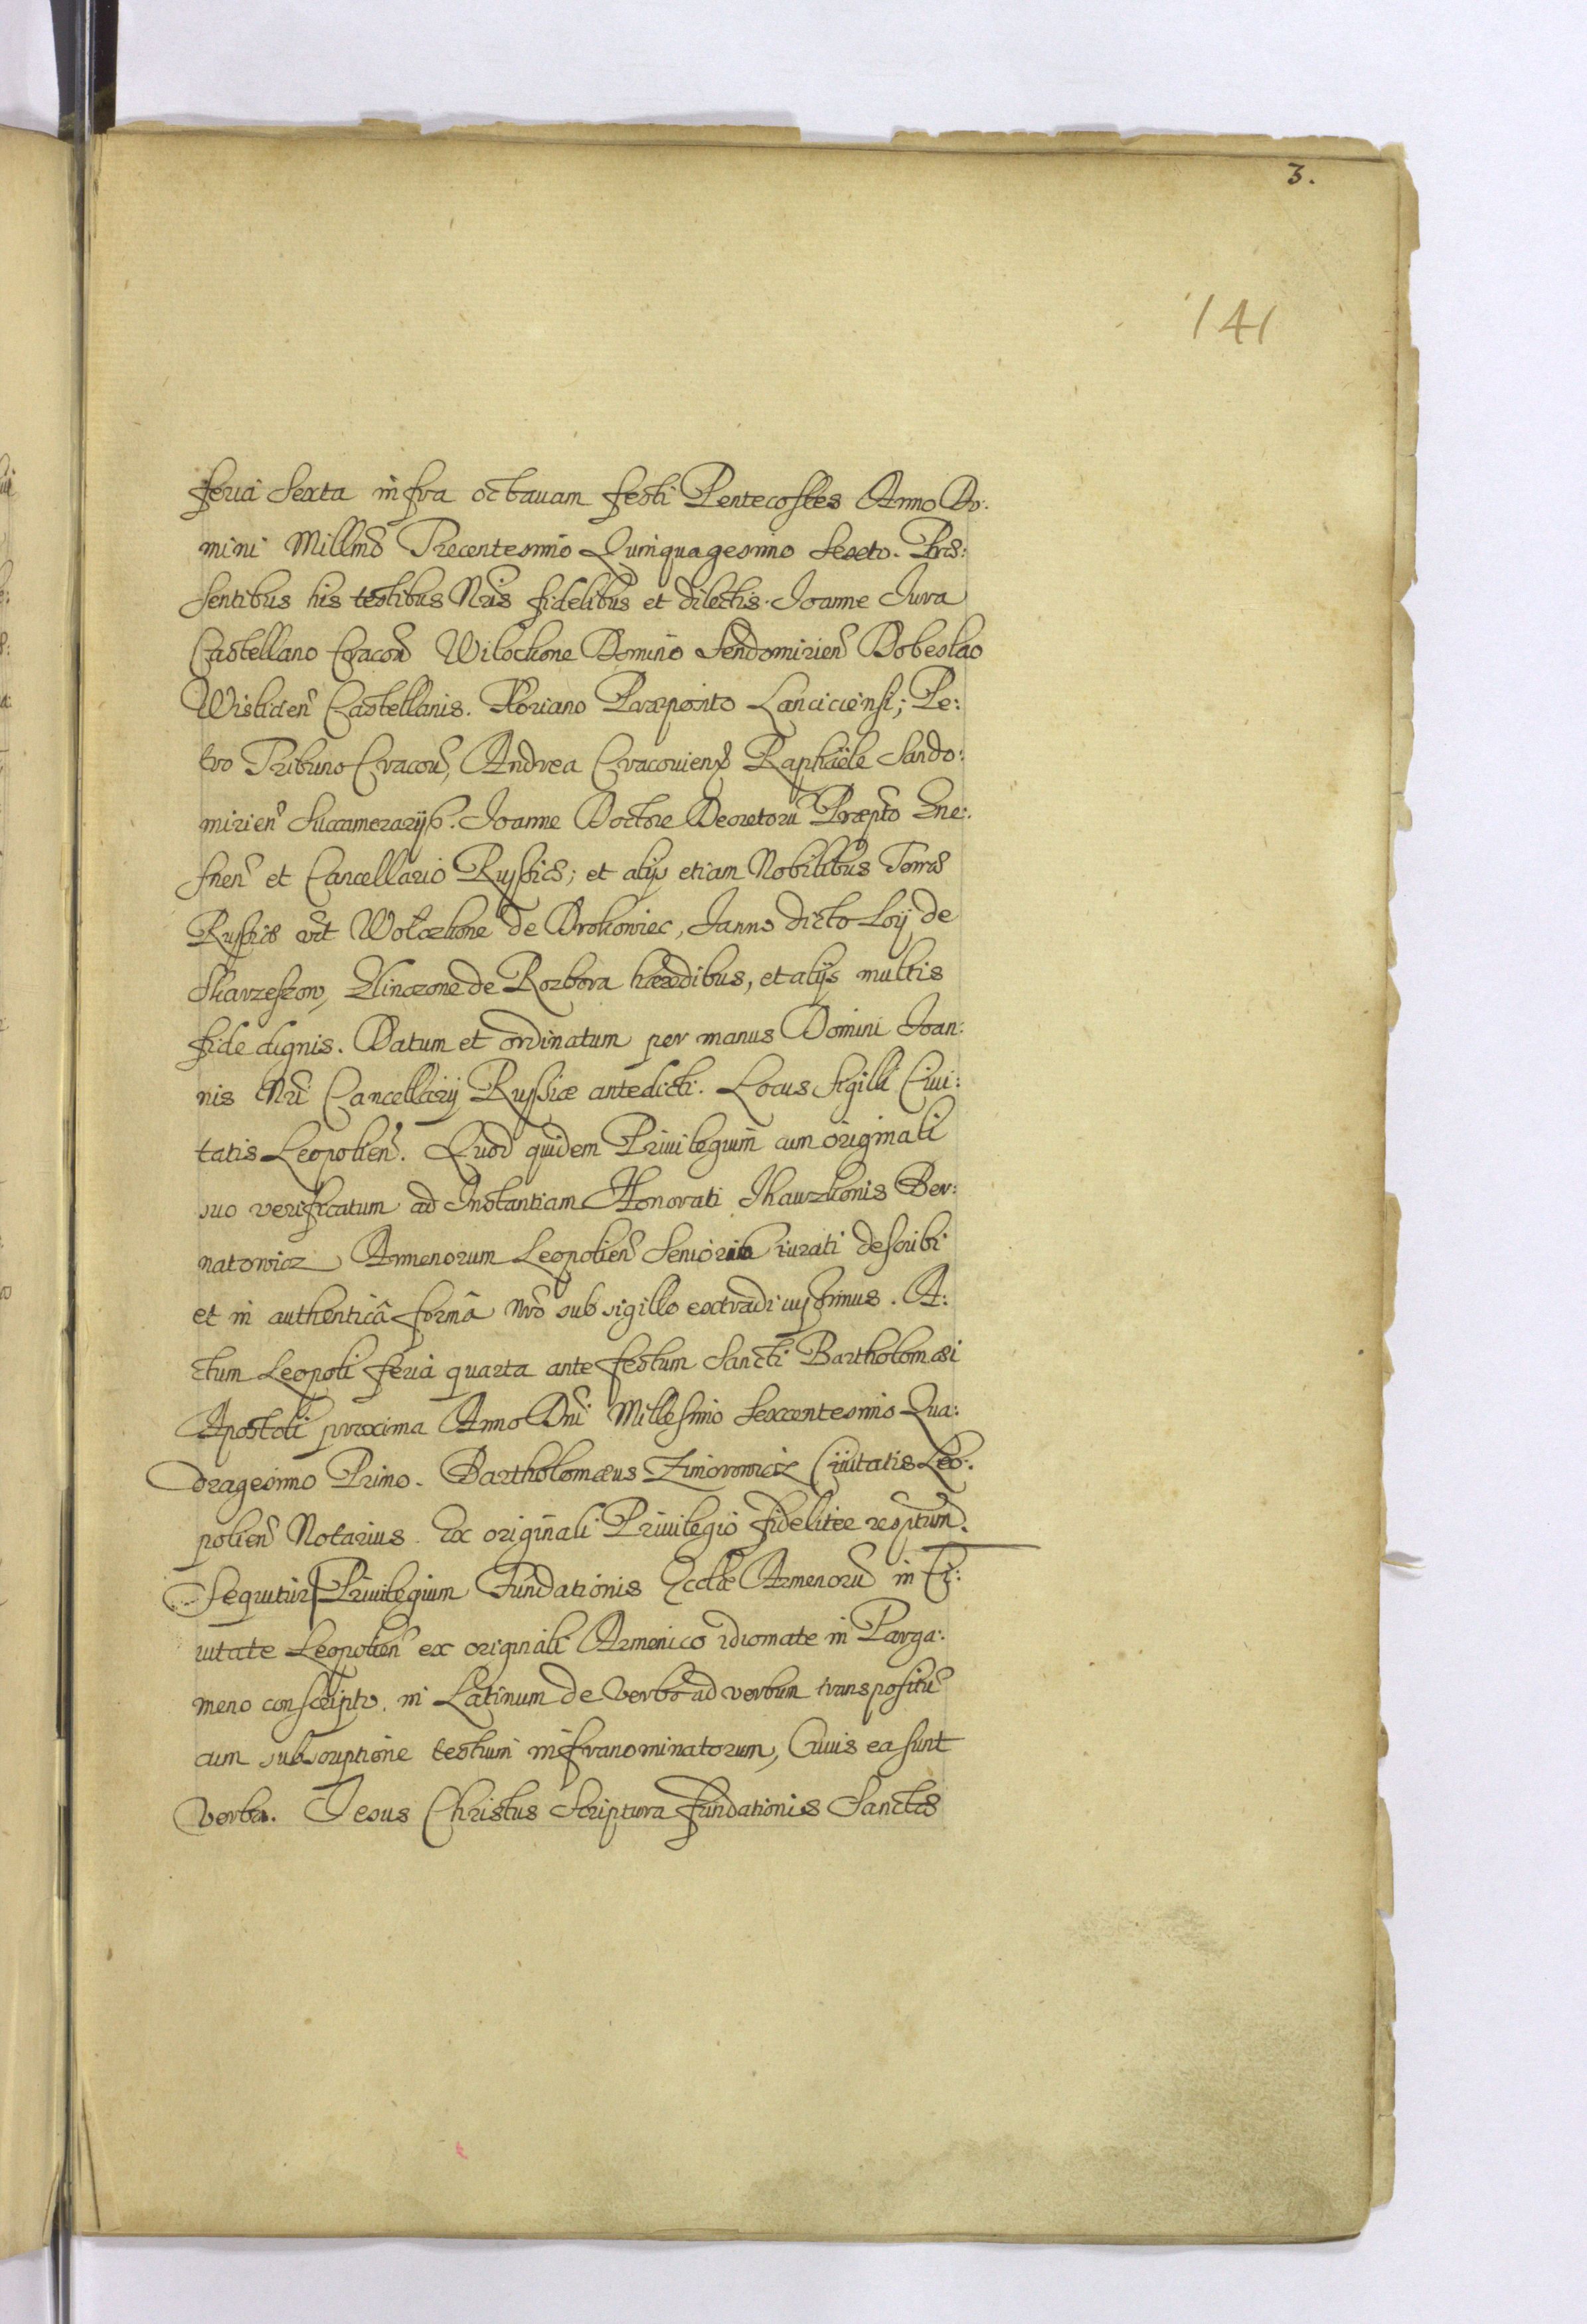 3.
141
feria Sexta infra octauam festi Pentecostes Anno Do:
mini Millmo Trecentesimo Quinquagesimo Sexto. Præ:
sentibus his testibus Nris fidelibus et dilectis. Joanne Jura
Castellano Cracou Wilockone Domino Sendomirien Dobeslao
Wislicien Castellanis. Floriano Præposito Lanciciensi; Pe:
tro Tribuno Cracou, Andrea Cracouien Raphaële Sando:
mirien Succamerarijs. Joanne Doctore Decretoru Præpto Gne:
snen et Cancellario Russiæ; et alijs etiam Nobilibus Terræ
Russiæ vt Wolczkone de Drokowiec, Janno dicto Loij de
Skarzeszow, Klinczone de Rozbora hæredibus, et alijs multis
fide dignis. Datum et ordinatum per manus Domini Joan:
nis Nri Cancellarij Russiæ antedicti. Locus Sigilli Ciui:
tatis Leopolien. Quod quidem Priuilegium cum originali
suo verificatum ad Instantiam Honorati Jhawzkonis Ber:
natowicz Armenorum Leopolien Senioris iurati describi
et in authenticâ formâ nro sub sigillo extradi iussimus. A:
ctum Leopoli feria quarta ante festum Sancti Bartholomæi
Apostoli proxima Anno Dni Millesimo Sexcentesimo Qua:
dragesimo Primo. Bartholomæus Zimorowicz Ciuitatis Leo:
polien Notarius. Ex originali Priuilegio fideliter rescptum.
Sequitur Priuilegium Fundationis Ecclæ Armenoru in Ci:
uitate Leopolien ex originali Armenico idiomate in Parga:
meno conscripto, in Latinum de verbo ad verbum transpositu
cum subscriptione testium infranominatorum, Cuius ea sunt
verba. Jesus Christus Scriptura fundationis Sanctæ